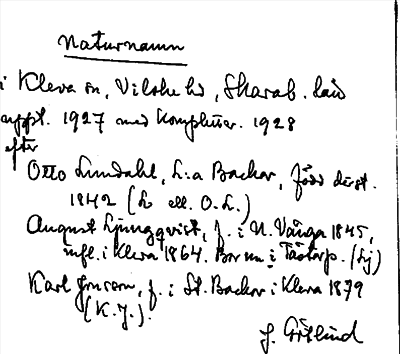 Naturnamn
i Kleva sn, Vilske hd, Skarab. län
uppt. 1927 med kompletter. 1928
efter
Otto Lundahl, L:a Backor, född därst.
1842 (L ell. O.L.)
August Ljungqvist, f. i N. Vånga 1845,
infl. i Kleva 1864. Bor nu i Tåstorp. (Lj)
Karl Jonson, f. i St. Backor i Kleva 1879
(K.J.).
J. Götlind